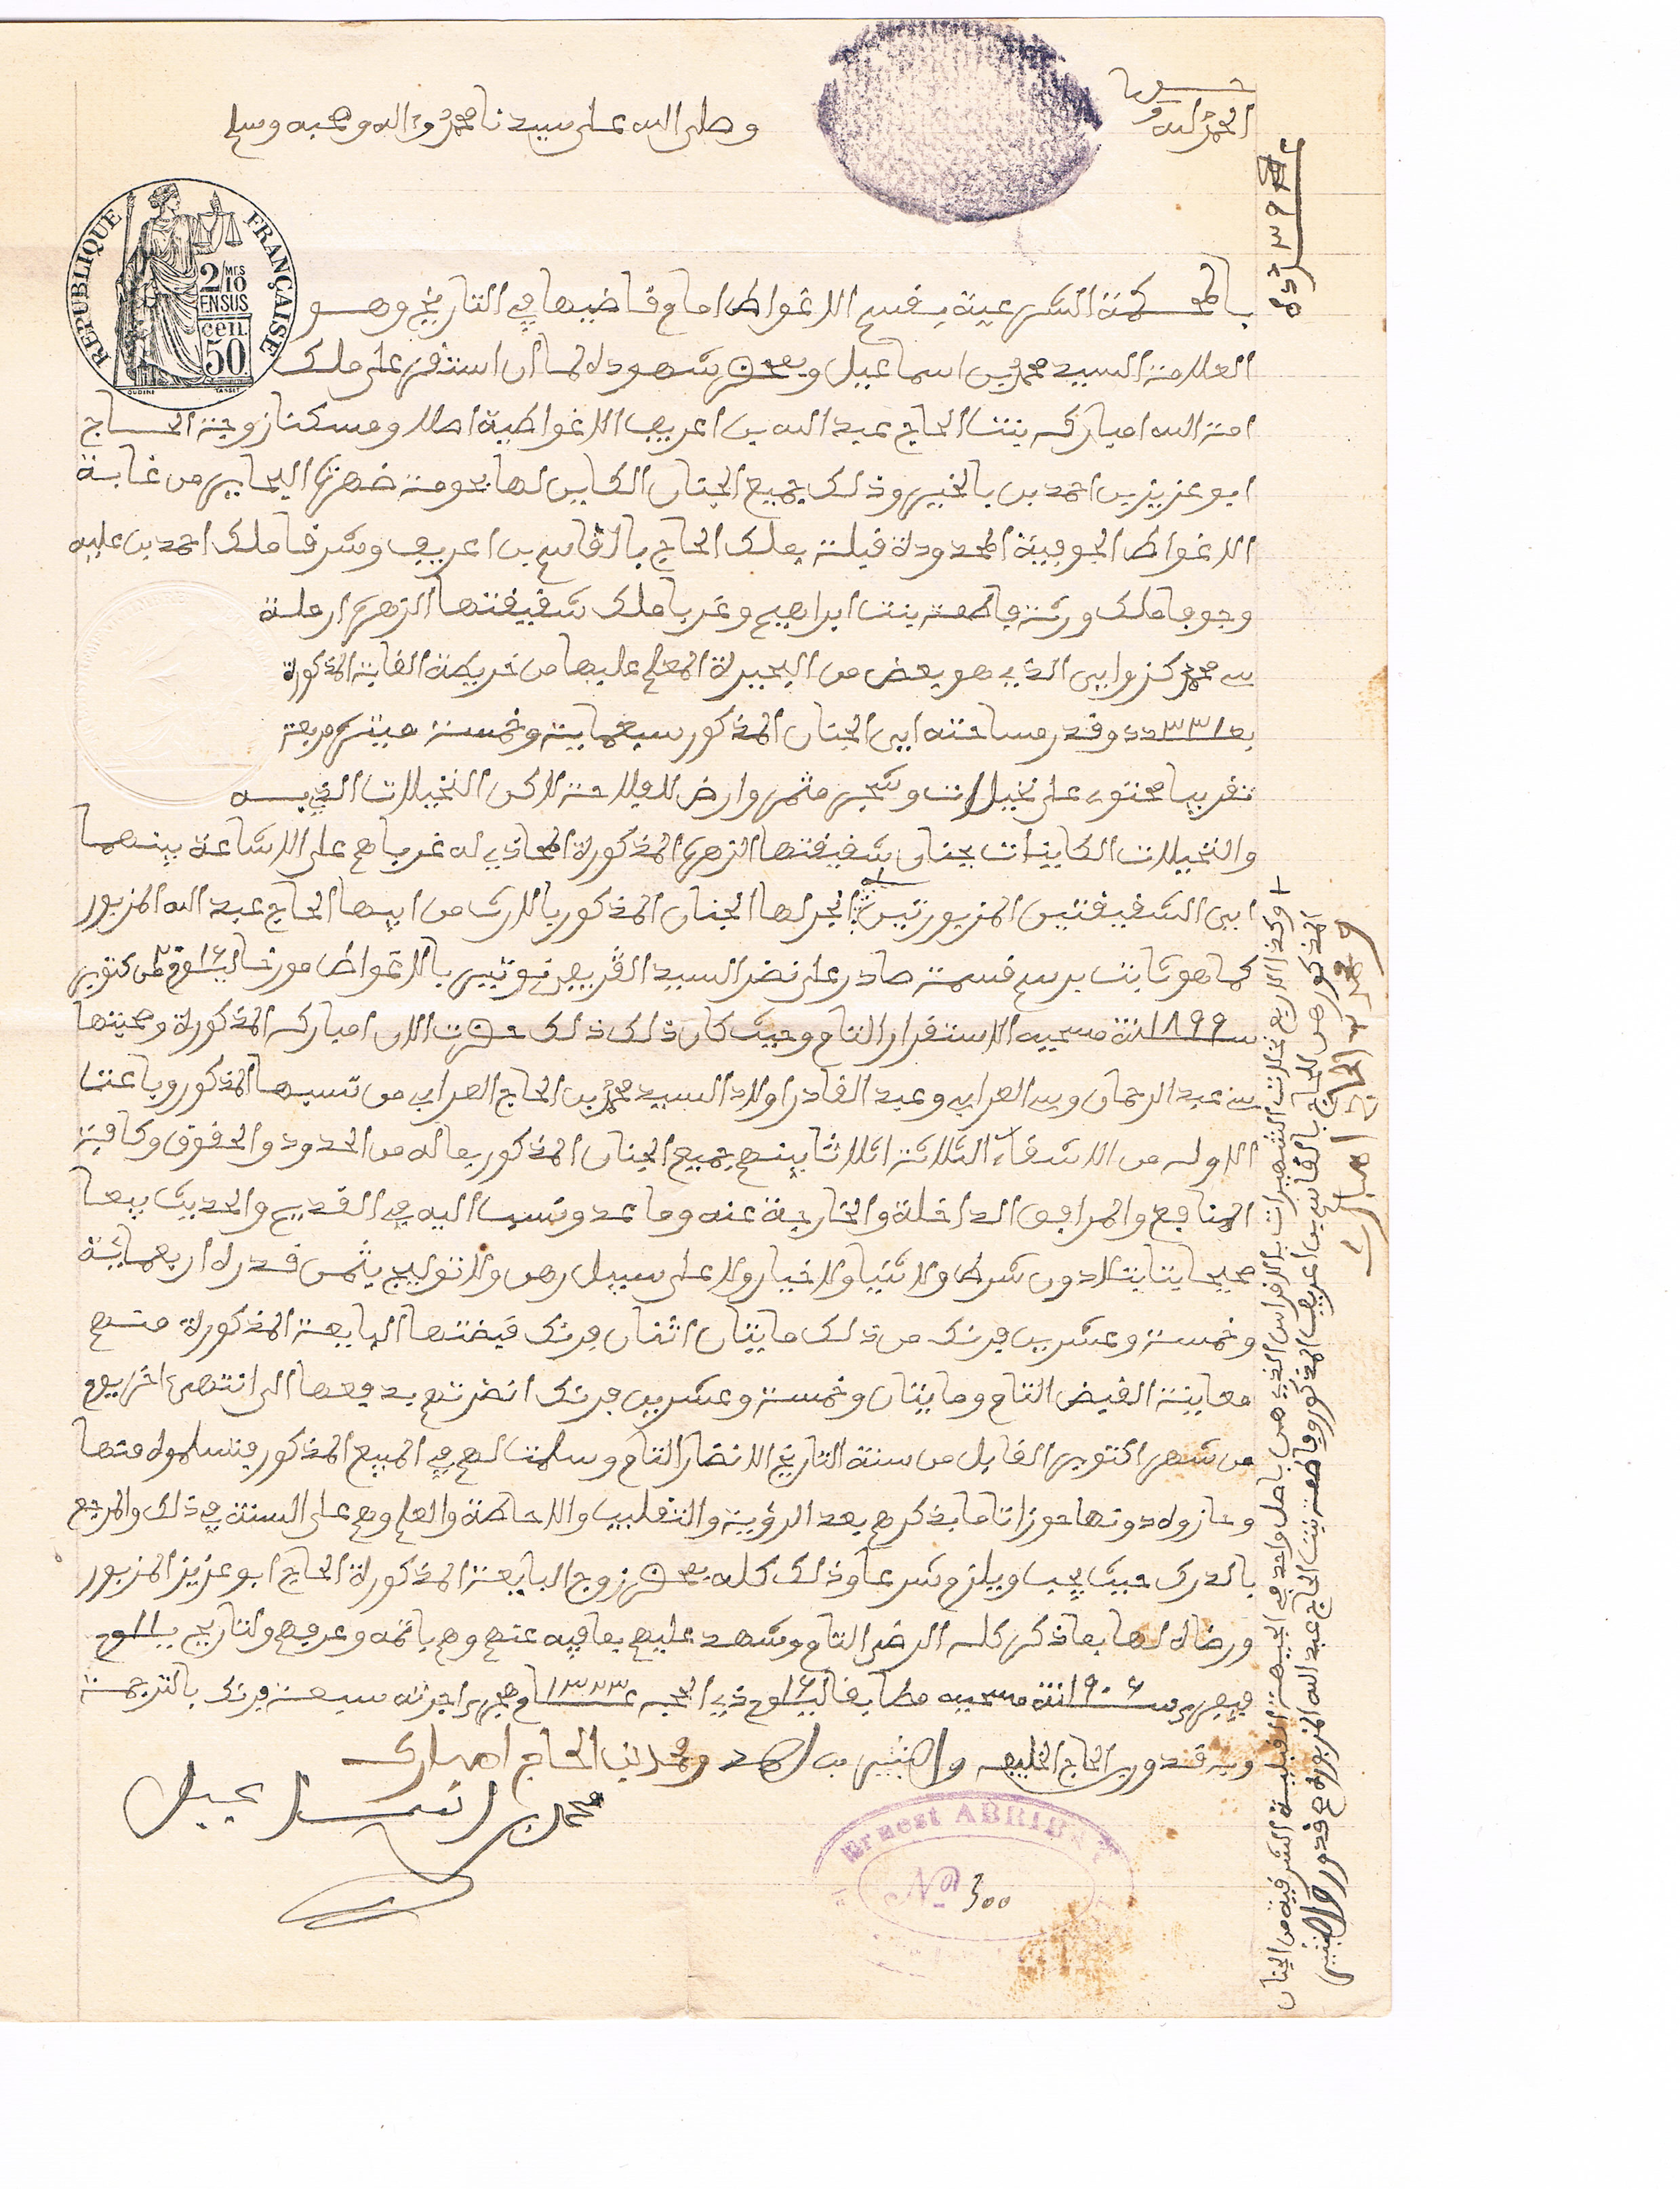 الحمد لله وحده
وصلى الله على سيدنا محمد وءاله وصحبه وسلم
REPUBLIQUE FRANÇAISE
2/10 MES
EN SUS
50 cen
عدد ٣٩
بالمحكمة الشرعية بقسم الاغواط امام قاضيها في التاريخ وهو
العلامة السيد محمد بن اسماعيل وبمحضر شهوده لما ان استقر على ملك
امة الله امباركه بنت الحاج عبد الله بن اعريب الاغواطية اصلا ومسكنا زوجة الحاج
ابو عزيز بن احمد بن بالخير وذلك جميع الجنان الكاين لها بحومة ضهرة البحاير من غابة
الاغواط الجوفية المحدودة قبلة بملك الحاج بالقاسم بن اعريب وشرقا ملك احمد بن عليه
وجوفا ملك ورثة فاطمة بنت ابراهيم وغربا ملك شقيقتها الزهرة ارملة
سي محمد كزواي الذي هو بعض من البحيرة المعلم عليها من خريطة الغابة المذكورة
بعدد ٣٣١ وقدر مساحته ايى الجنان المذكور سبعماية وخمسة ميترة مربعة
تقريبا محتوى على نخيلات وشجر مثمر وارض للفلاحة لاكن النخيلات الذي به
والنخيلات الكاينات بجنان شقيقتها الزهرة المذكورة المحاذي له غربا هم على الاشاعة بينهما
ايى الشقيقتين المزبورتين + انجر لها الجنان المذكور بالارث من ابيها الحاج عبد الله المزبور
كما هو ثابت برسم قسمة صادر على نضر السيد القريفي نوتير بالاغواط مورخ اليوم ١٦ من اكتوبر
سنة ١٨٩٩ مسحيه الاستقرار التام وحيث كان ذلك ذلك حضرت الان امباركه المذكورة وصحبتها
سي عبد الرحمان وسي العرابي وعبد القادر اولاد السيد محمد بن الحاج العرابي من نسبها المذكور وباعت
الاوله من الاشقاء الثلاثة اثلاثا بينهم جميع الجنان المذكور بماله من الحدود والحقوق وكافة
المنافع والمرافق الداخلة والخارجة عنه وما عد ونسب اليه في القديم والحديث بيعا
صحيحا بتا بتلا دون شرط ولا ثنيا ولا خيار ولا على سبيل رهن ولا توليج بثمن قدره اربعماية
وخمسة وعشرين فرنك من ذلك مايتان اثنان فرنك قبضتها البايعة المذكورة منهم
معاينة القبض التام ومايتان وخمسة وعشرين فرنك انضرتهم بدفعها الى انتهى اخر يوم
من شهر اكتوبر القابل من سنة التاريخ الانضار التام وسلمت لهم في المبيع المذكور فتسلموه منها
وحازوه دونها حوزا تاما بذكرهم بعد الرؤية والتقليب والاحاطة والعلم وهم على السنة في ذلك والمرجع
بالدرك حيث يجب ويلزم شرعا وذلك كله بمحضر زوج البايعة المذكورة الحاج ابو عزيز المزبور
ورضاه لها بما ذكر كله الرضى التام وشهد عليهم بما فيه عنهم وهم باتمه وعرفهم ولتاريخ يوم ١١
فيفري سنة ١٩٠٦ مسحيه مطابقا ليوم ١٦ ذي الحجه عام ١٣٢٣ هجري اجرته سبعة فرنك بالترجمة
وبه قدور بن الحاج الخليفه والبشير بن احمد ومحمد بن الحاج امبارك
محمد بن اسماعيل
Ernest ABRIBAT
No 300
+ وكذا الاربع نخلات الشهيرات بالافراس الذي هن باصل واحد في الجهة القبلية الشرقية من الجنان
المذكور هن للحاج بالقاسم بن اعريب المذكور وفاطمة بنت الحاج عبد الله المزبور صح قدور والبشير
ومحمد بن الحاج امبارك